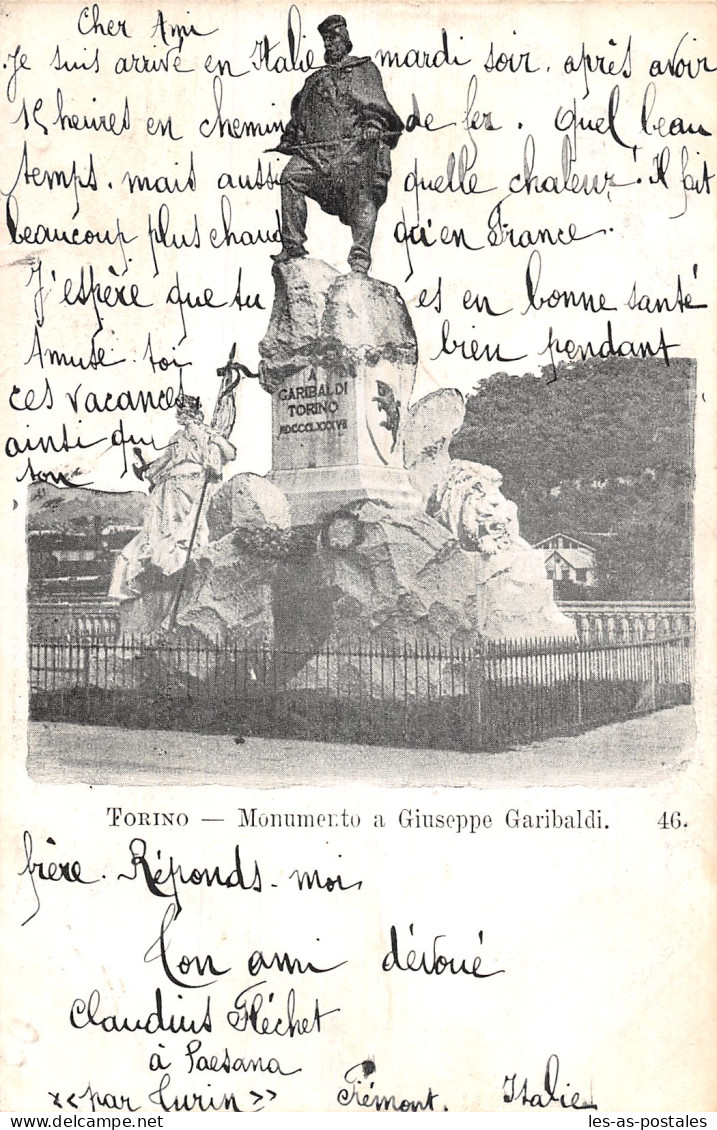 Cher Ami
Je suis arrivé en Italie mardi soir. après avoir
15 heures en chemin de fer. Quel beau
temps. mais aussi quelle chaleur! Il fait
beaucoup plus chaud qu'en France.
J'espère que tu es en bonne santé
Amuse toi bien pendant
ces vacances
ainsi que
ton
A
GARIBALDI
TORINO
MDCCCLXXXVII
TORINO — Monumento a Giuseppe Garibaldi. 46.
frère. Réponds-moi
Ton ami dévoué
Claudius Fléchet
à Paesana
«par Turin» Piémont. Italie
les-as-postales.com